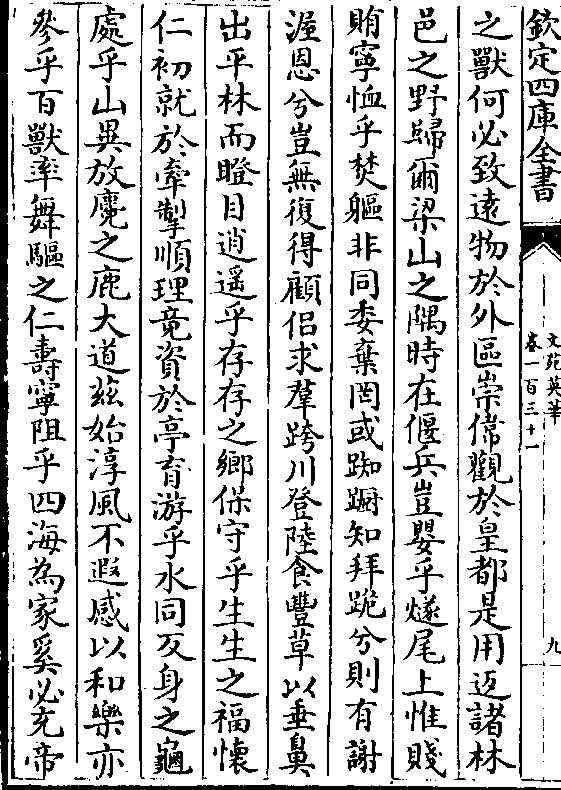 欽定四庫全書
文苑英華
卷一百三十一
九
之獸何必致遠物於外區崇偉觀於皇都是用返諸林
邑之野歸爾梁山之隅時在偃兵豈嬰乎燧尾上惟賤
賄寧恤乎焚軀非同委棄罔或踟蹰知拜跪兮則有謝
渥恩兮豈無復得顧侣求羣跨川登陸食豐草以垂鼻
出平林而瞪目逍遥乎存存之鄉保守乎生生之福懷
仁初就於牽掣順理竟資於亭育游乎水同反身之龜
處乎山異放麑之鹿大道兹始淳風不遐感以和樂亦
參乎百獸率舞驅之仁壽寧阻乎四海為家奚必充帝